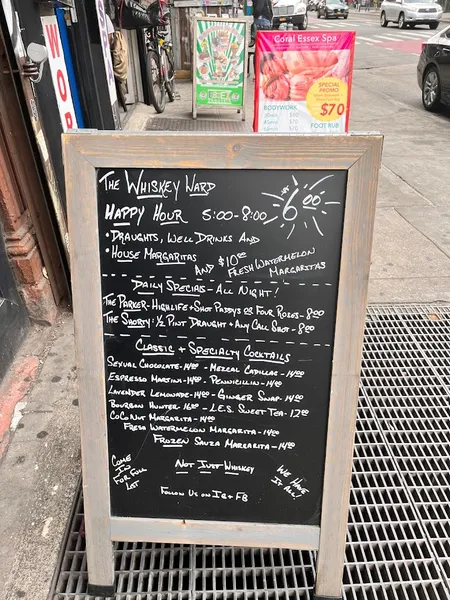 Coral Essex Spa
SPECIAL
PROMO
$70
BODYWORK
FOOT RUB
THE WHISKEY WARD
HAPPY HOUR 5:00-8:00 $6.00
• DRAUGHTS, WELL DRINKS AND
• HOUSE MARGARITAS AND $10.00 FRESH WATERMELON MARGARITAS
DAILY SPECIALS - ALL NIGHT!
THE PARKER - HIGHLIFE + SHOT PADDYS OR FOUR ROSES - 8.00
THE SHORTY: 1/2 PINT DRAUGHT + ANY CALL SHOT - 8.00
CLASSIC + SPECIALTY COCKTAILS
SEXUAL CHOCOLATE - 14.00 - MEZCAL CADILLAC - 14.00
ESPRESSO MARTINI - 14.00 - PENNICILLIN - 14.00
LAVENDER LEMONADE - 14.00 - GINGER SNAP - 14.00
BOURBON HUNTER 16.00 - L.E.S. SWEET TEA - 12.00
COCONUT MARGARITA - 14.00
FRESH WATERMELON MARGARITA - 14.00
FROZEN SAUZA MARGARITA - 14.00
COME
IN
FOR FULL
LIST
NOT JUST WHISKEY
WE HAVE
IT ALL!
FOLLOW US ON IG + FB